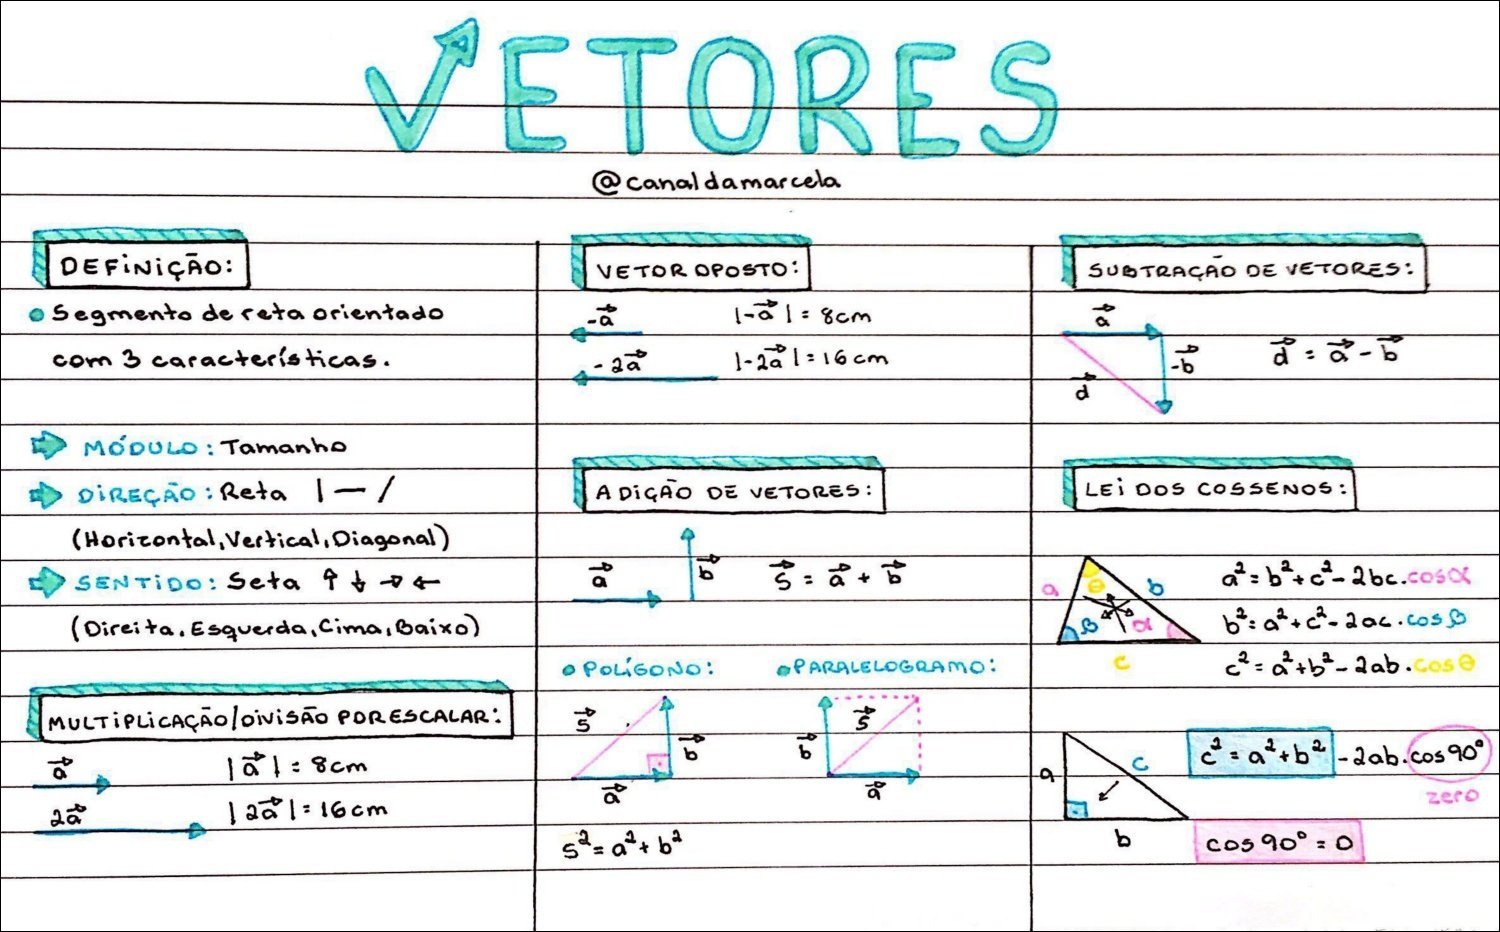 VETORES
@canaldamarcela
DEFINIÇÃO:
Segmento de reta orientado
com 3 características.
MÓDULO: Tamanho
DIREÇÃO: Reta | — /
(Horizontal, Vertical, Diagonal)
SENTIDO: Seta ↑ ↓ → ←
(Direita, Esquerda, Cima, Baixo)
MULTIPLICAÇÃO/DIVISÃO POR ESCALAR:
a⃗ |a⃗| = 8cm
2a⃗ |2a⃗| = 16cm
VETOR OPOSTO:
-a⃗ |-a⃗| = 8cm
-2a⃗ |-2a⃗| = 16cm
ADIÇÃO DE VETORES:
a⃗ b⃗ s⃗ = a⃗ + b⃗
POLÍGONO: PARALELOGRAMO:
s⃗ b⃗ a⃗
b⃗ s⃗ a⃗
s² = a² + b²
SUBTRAÇÃO DE VETORES:
a⃗ -b⃗ d⃗
d⃗ = a⃗ - b⃗
LEI DOS COSSENOS:
a θ b β α c
a² = b² + c² - 2bc.cosα
b² = a² + c² - 2ac.cosβ
c² = a² + b² - 2ab.cosθ
a c b
c² = a² + b² - 2ab.cos90°
zero
cos90° = 0